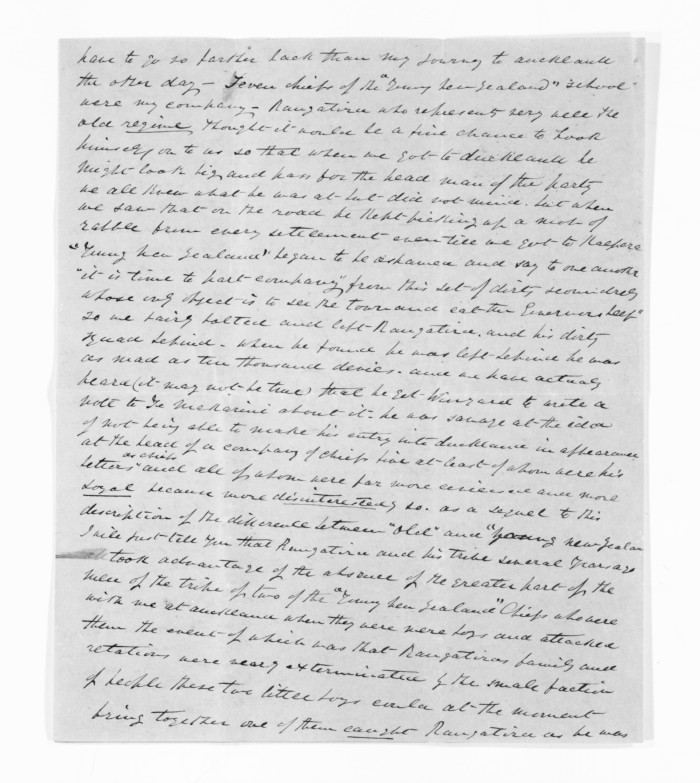 have to go no farther back than my journey to auckland
the other day — Seven chiefs of the "Young New Zealand" school
were my company — Rangatira who represents very well the
old regime, thought it would be a fine chance to hook
himself on to us so that when we got to auckland he
might look big, and pass for the head man of the party
we all knew what he was at but did not mind. but when
we saw that on the road he kept picking up a mob of
rabble from every settlement even till we got to Kaipara
"Young New Zealand" began to be ashamed and say to one another
"it is time to part company," from this set of dirty scoundrels
whose only object is to see the town and eat the Governors beef"
so we fairly bolted and left Rangatira. and his dirty
squad behind. when he found he was left behind he was
as mad as ten thousand devils. and we have actually
heard (it may not be true) that he got Winyard to write a
note to Te Makarini about it. he was savage at the idea
of not being able to make his entry into auckland in appearance
at the head of a company of chiefs five at least of whom were his
betters as chiefs and all of whom were far more civilised and more
loyal because more disinterestedly so. as a sequel to this
description of the difference between "Old" and "young New Zealand
I will just tell you that Rangatira and his tribe several years ago
took advantage of the absence of the greater part of the
men of the tribe of two of the "Young New Zealand" Chiefs who were
with me at auckland when they were mere boys and attacked
them the event of which was that Rangatiras family and
relations were nearly exterminated by the small faction
of people these two little boys could at the moment
bring together one of them caught Rangatira as he was